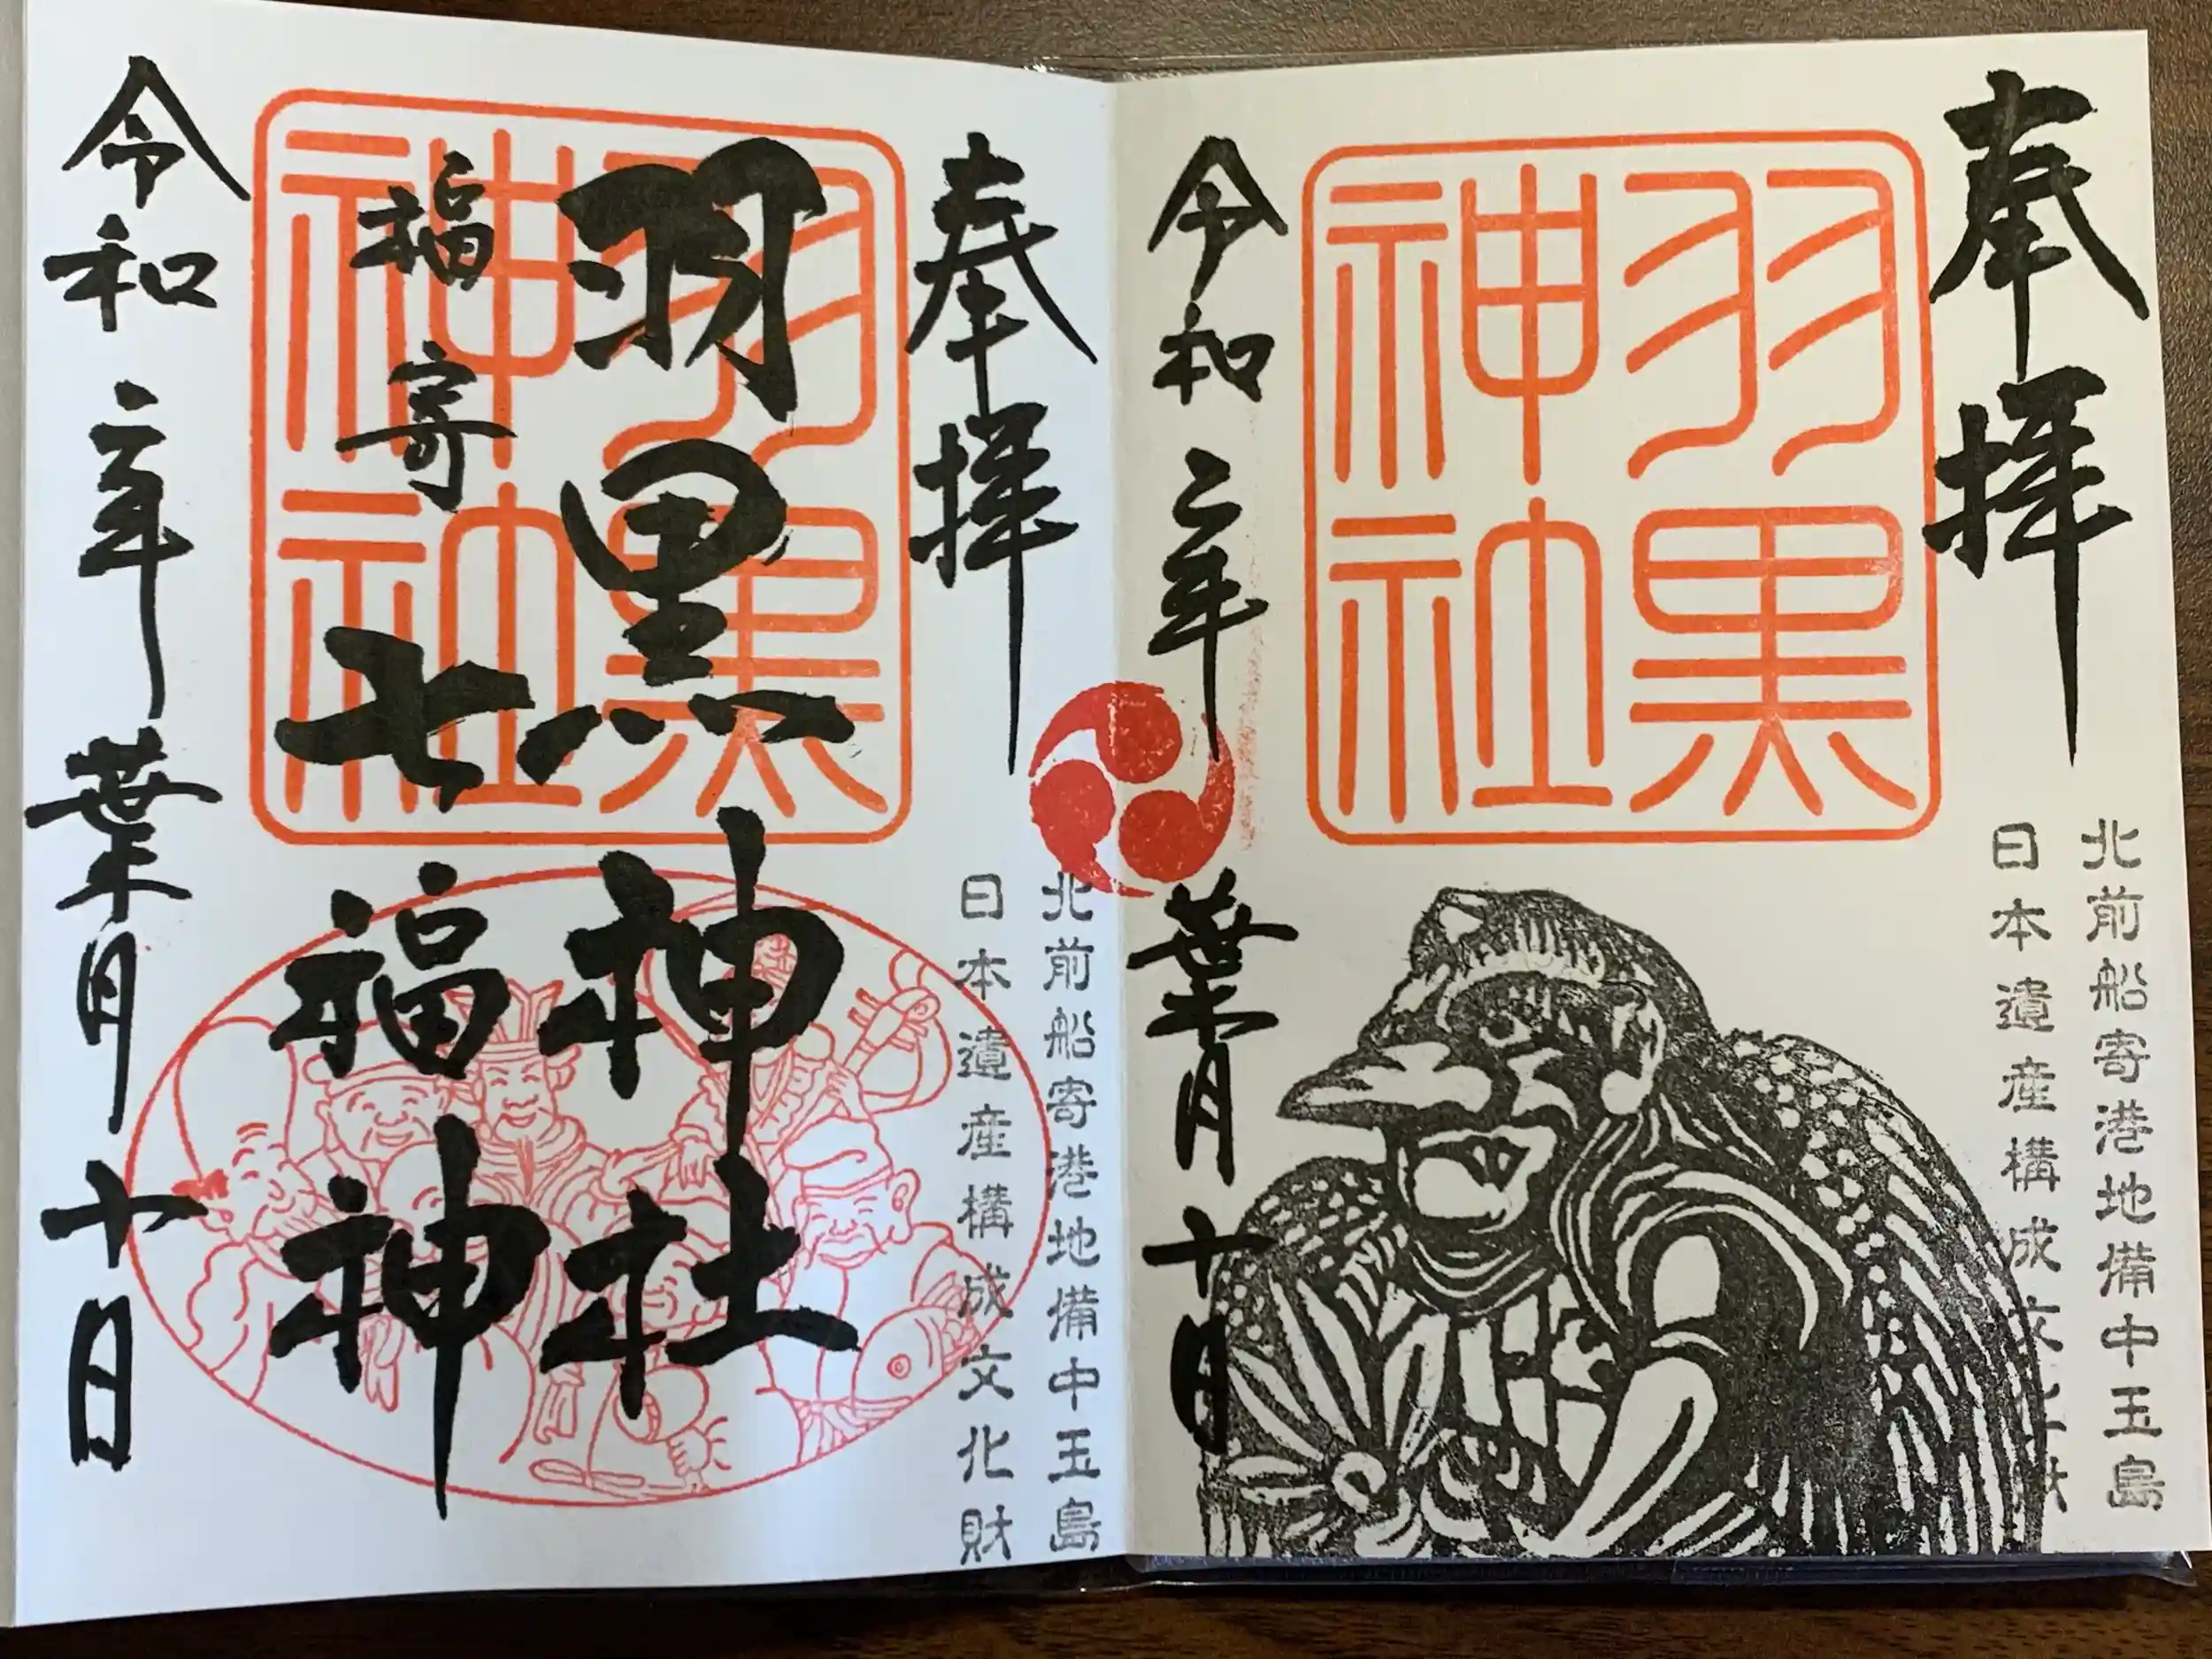 奉拝
羽黒神社
北前船寄港地備中玉島
日本遺産構成文化財
令和二年 葉月 十日
奉拝
羽黒神社
北前船寄港地備中玉島
日本遺産構成文化財
羽黒神社
福寄 七福神
令和二年 葉月 十日